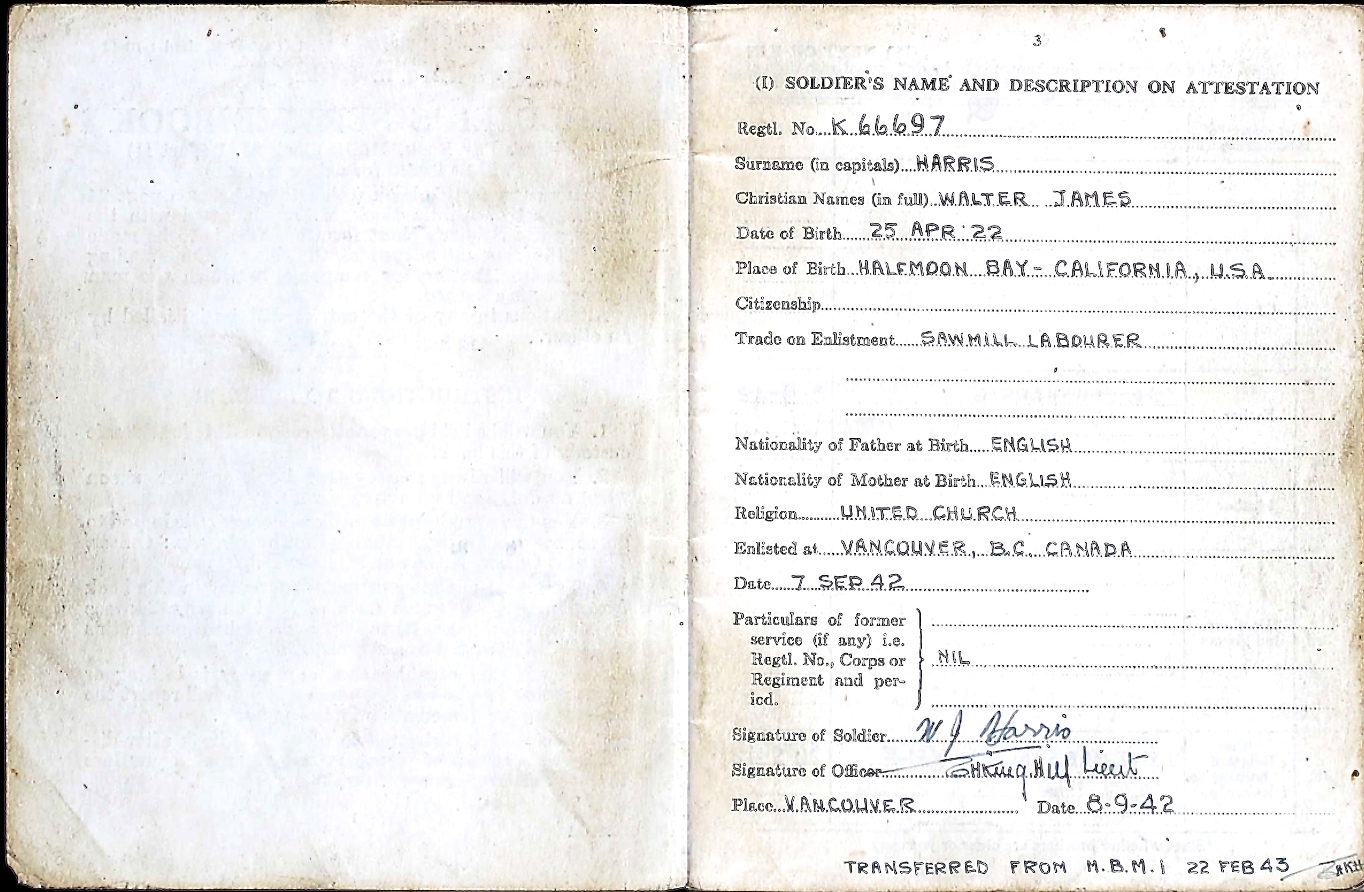 3
(I) SOLDIER'S NAME AND DESCRIPTION ON ATTESTATION
Regtl. No. K 66697
Surname (in capitals) HARRIS
Christian Names (in full) WALTER JAMES
Date of Birth 25 APR 22
Place of Birth HALFMOON BAY - CALIFORNIA, U.S.A
Citizenship
Trade on Enlistment SAWMILL LABOURER
Nationality of Father at Birth ENGLISH
Nationality of Mother at Birth ENGLISH
Religion UNITED CHURCH
Enlisted at VANCOUVER, B.C. CANADA
Date 7 SEP 42
Particulars of former
service (if any) i.e.
Regtl. No., Corps or NIL
Regiment and per-
iod.
Signature of Soldier W J Harris
Signature of Officer Lieut
Place VANCOUVER Date 8-9-42
TRANSFERRED FROM M.B.M. 1 22 FEB 43